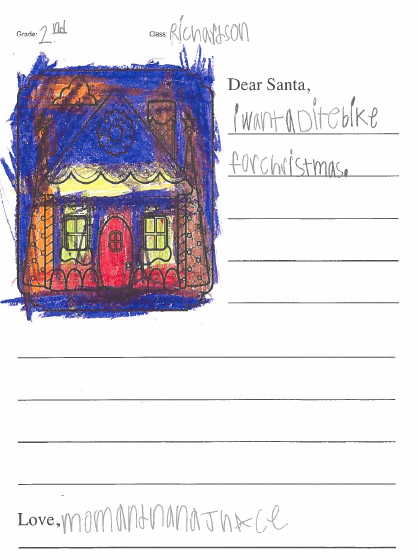 Grade: 2nd Class: Richardson
Dear Santa,
i want a Dite bike
for christmas.
Love, mom and nana